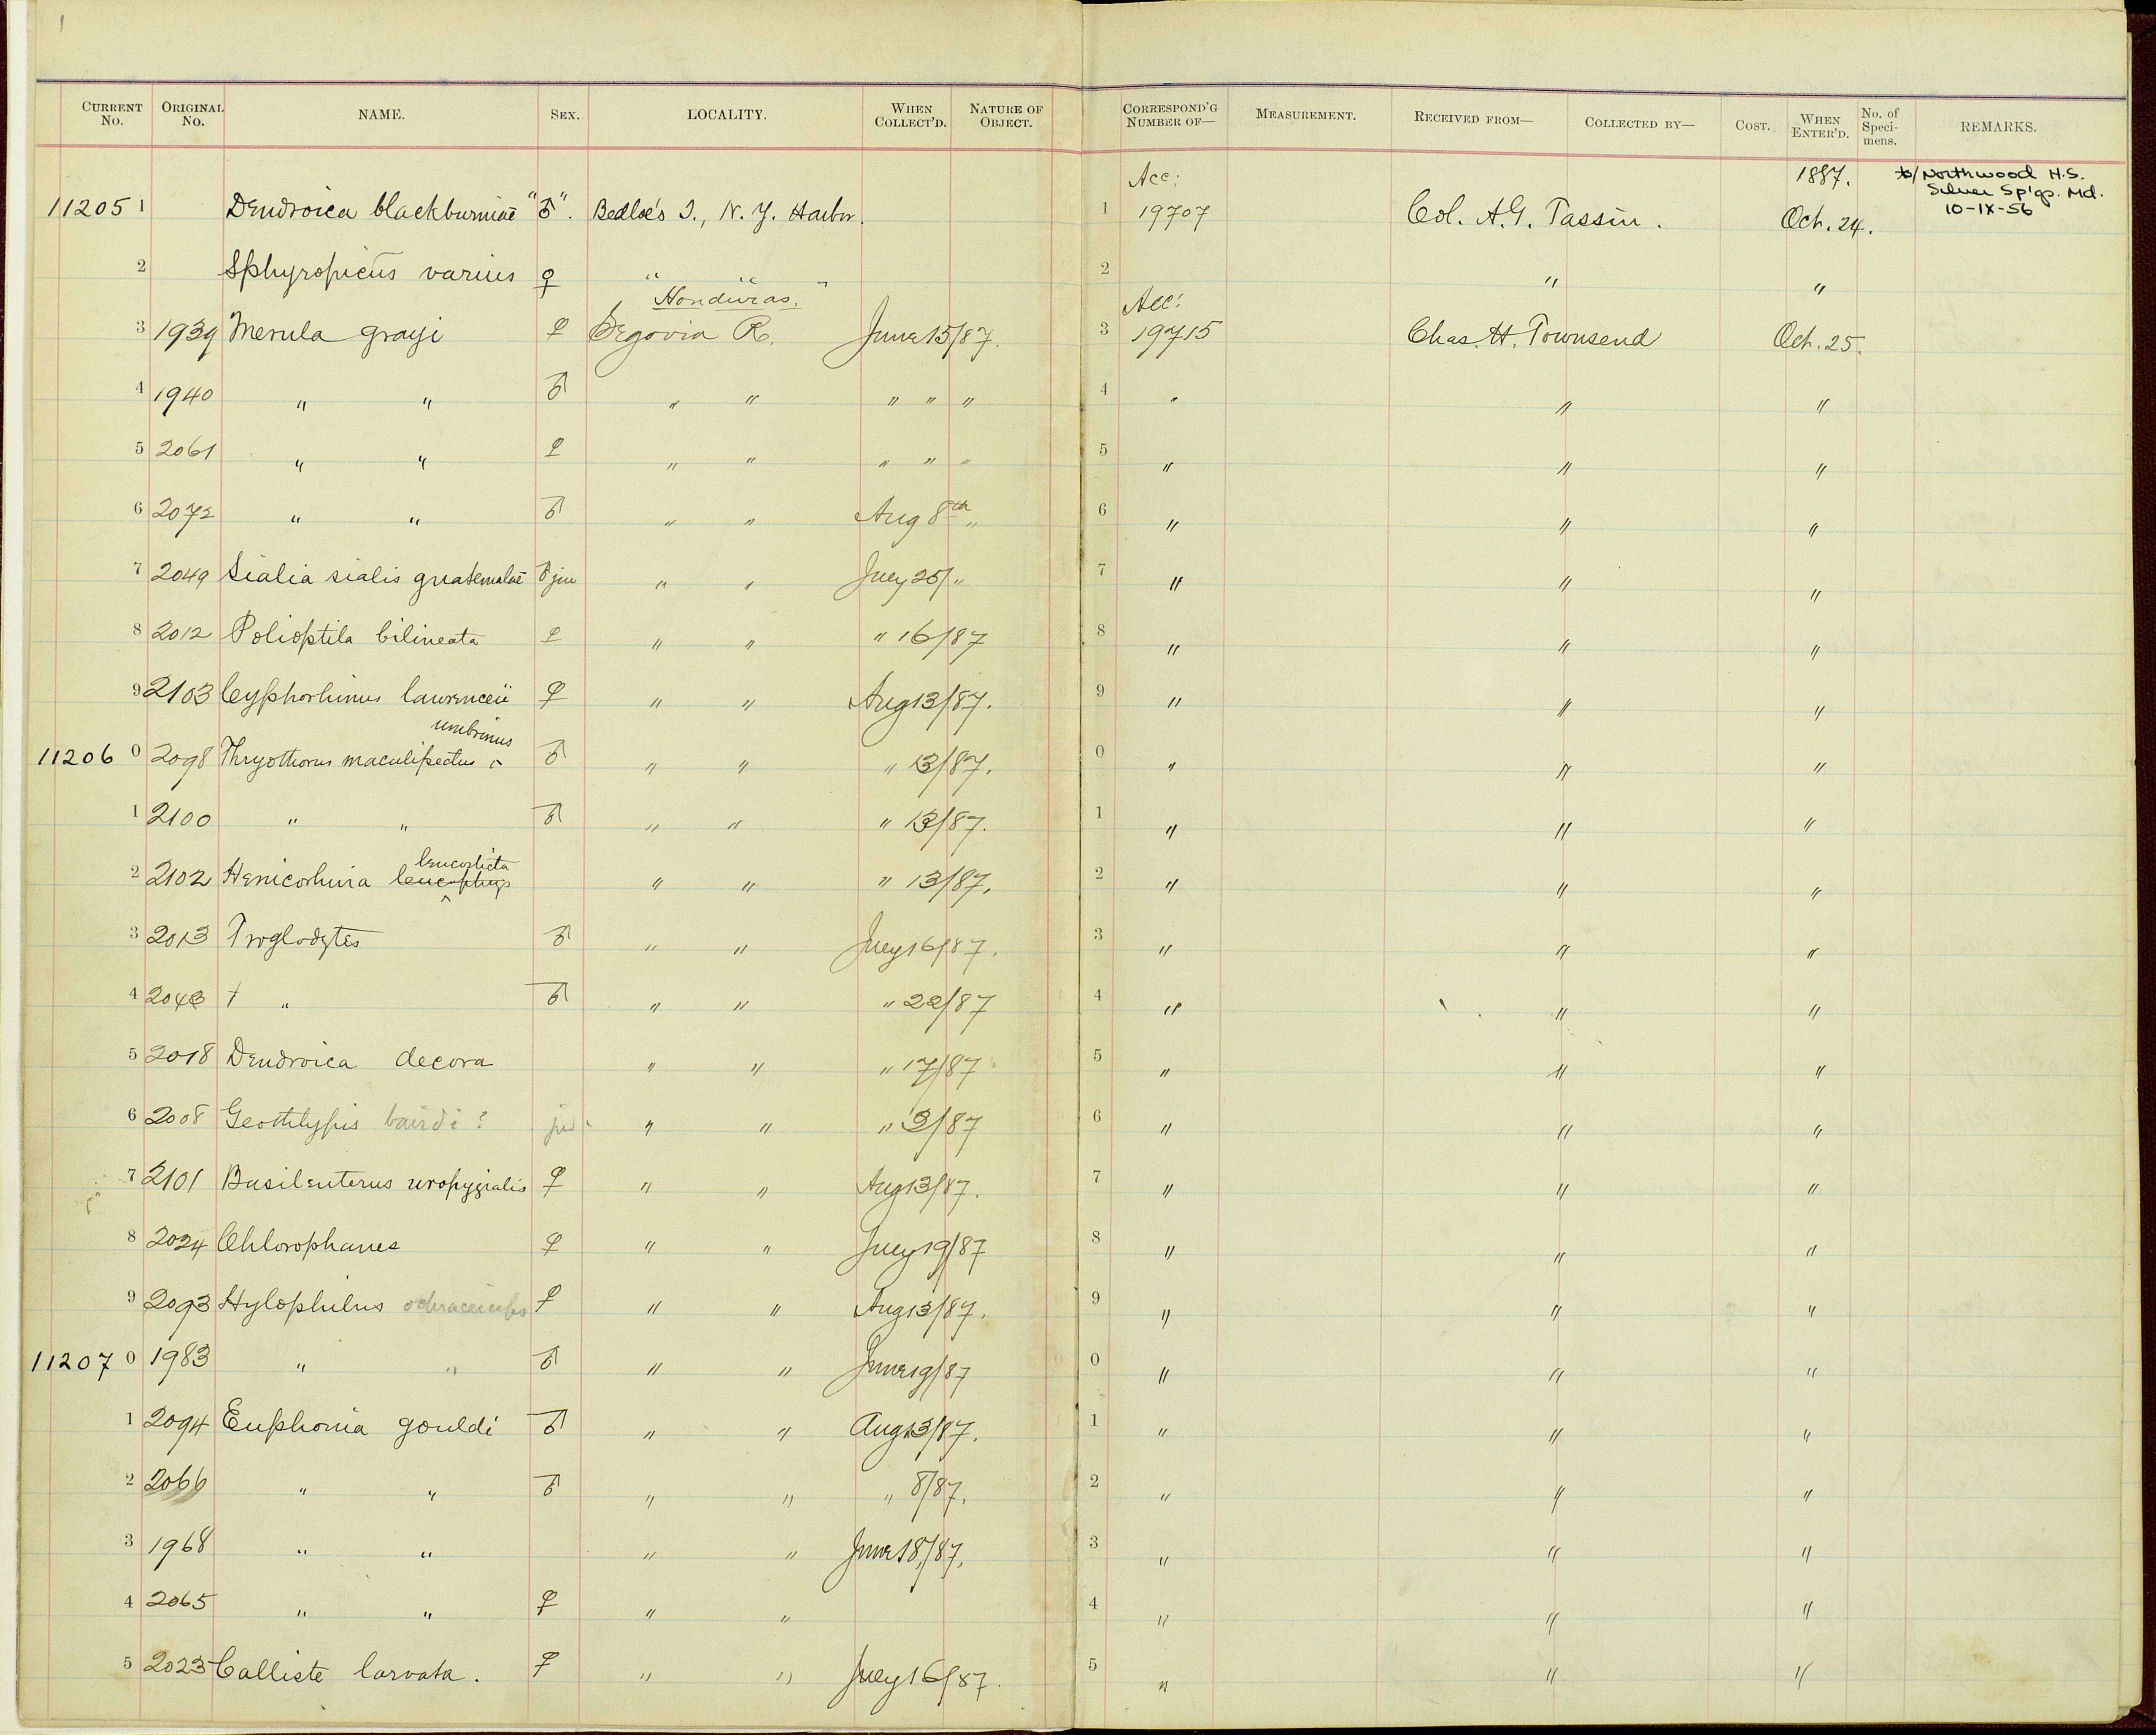 CURRENT No. ORIGINAL No. NAME. SEX. LOCALITY. WHEN COLLECT'D. NATURE OF OBJECT. CORRESPOND'G NUMBER OF— MEASUREMENT. RECEIVED FROM— COLLECTED BY— COST. WHEN ENTER'D. No. of Speci- mens. REMARKS.
Acc: 1887. Northwood H.S.
Silver Sp'gs. Md.
11205 1 Dendroica blackburniae "♂". Bedloe's I., N. Y. Harbor. 1 19707 Col. A. G. Tassin. Oct. 24. 10-IX-56
2 Sphyropicus varius ♀ " " " 2 " "
Honduras. Acc:
3 1939 Merula grayi ♀ Segovia R. June 15/87. 3 19715 Chas. H. Townsend Oct. 25.
4 1940 " " ♂ " " " " " 4 " " "
5 2061 " " ♀ " " " " " 5 " " "
6 2072 " " ♂ " " Aug 8th " 6 " " "
7 2049 Sialia sialis guatemalae ♂ juv " " July 25/ " 7 " " "
8 2012 Polioptila bilineata ♀ " " " 16/87 8 " " "
9 2103 Cyphorhinus lawrenceii ♀ " " Aug 13/87. 9 " " "
umbrinus
11206 0 2098 Thryothorus maculipectus ^ ♂ " " " 13/87. 0 " " "
1 2100 " " ♂ " " " 13/87. 1 " " "
leucosticta
2 2102 Henicorhina leucophrys " " " 13/87. 2 " " "
3 2013 Troglodytes ♂ " " July 16/87. 3 " " "
4 2043 † " ♂ " " " 22/87 4 " " "
5 2018 Dendroica decora " " " 17/87 5 " " "
6 2008 Geothlypis bairdi? juv " " " 3/87 6 " " "
7 2101 Basileuterus uropygialis ♀ " " Aug 13/87. 7 " " "
8 2024 Chlorophanes ♀ " " July 19/87 8 " " "
9 2093 Hylophilus ochraceiceps ♀ " " Aug 13/87. 9 " " "
11207 0 1983 " " ♂ " " June 19/87 0 " " "
1 2094 Euphonia gouldi ♂ " " Aug 13/87. 1 " " "
2 2066 " " ♂ " " " 8/87. 2 " " "
3 1968 " " " " June 18/87. 3 " " "
4 2065 " " ♀ " " 4 " " "
5 2023 Calliste larvata. ♀ " " July 16/87. 5 " " "